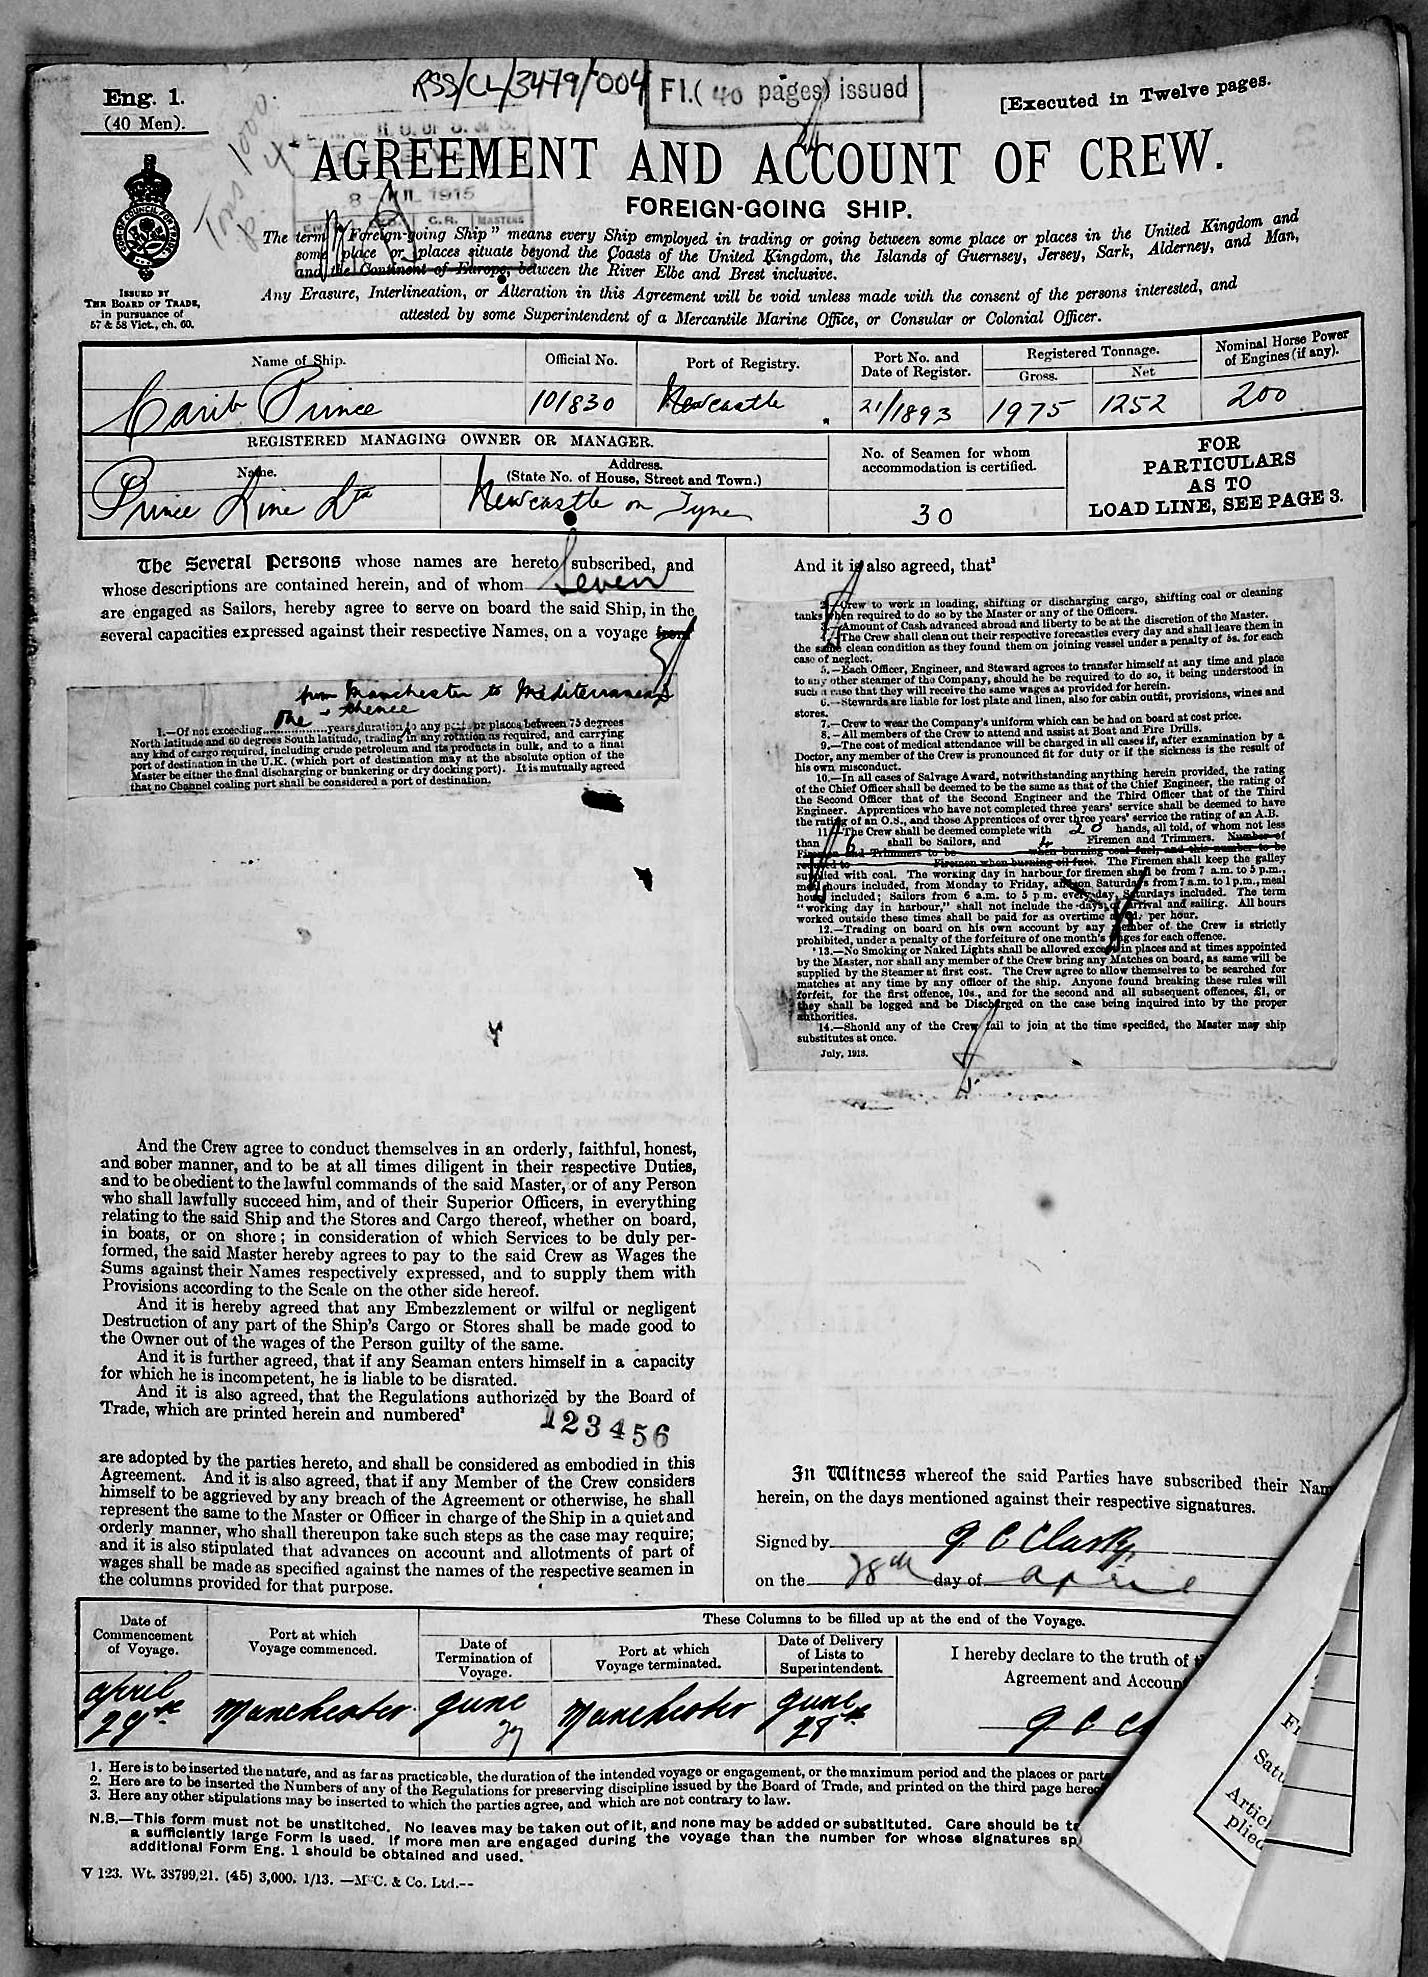 RSS/CL/3479/004
F1.( 40 pages) issued
[Executed in Twelve pages.
Eng. 1.
(40 Men).
8 JUL 1915
C.R. MASTERS
AGREEMENT AND ACCOUNT OF CREW.
FOREIGN-GOING SHIP.
The term "Foreign-going Ship" means every Ship employed in trading or going between some place or places in the United Kingdom and
some place or places situate beyond the Coasts of the United Kingdom, the Islands of Guernsey, Jersey, Sark, Alderney, and Man,
and the Continent of Europe, between the River Elbe and Brest inclusive.
Any Erasure, Interlineation, or Alteration in this Agreement will be void unless made with the consent of the persons interested, and
attested by some Superintendent of a Mercantile Marine Office, or Consular or Colonial Officer.
ISSUED BY
THE BOARD OF TRADE,
in pursuance of
57 & 58 Vict., ch. 60.
Name of Ship. Official No. Port of Registry. Port No. and Date of Register. Registered Tonnage. Gross. Net Nominal Horse Power of Engines (if any).
Carib Prince 101830 Newcastle 21/1893 1975 1252 200
REGISTERED MANAGING OWNER OR MANAGER.
Name. Address. (State No. of House, Street and Town.) No. of Seamen for whom accommodation is certified.
Prince Line Ltd Newcastle on Tyne 30
FOR
PARTICULARS
AS TO
LOAD LINE, SEE PAGE 3.
The Several Persons whose names are hereto subscribed, and
whose descriptions are contained herein, and of whom Seven
are engaged as Sailors, hereby agree to serve on board the said Ship, in the
several capacities expressed against their respective Names, on a voyage from
from Manchester to Mediterranean
One & thence
1.—Of not exceeding..................years duration to any port or places between 75 degrees
North latitude and 60 degrees South latitude, trading in any rotation as required, and carrying
any kind of cargo required, including crude petroleum and its products in bulk, and to a final
port of destination in the U.K. (which port of destination may at the absolute option of the
Master be either the final discharging or bunkering or dry docking port). It is mutually agreed
that no Channel coaling port shall be considered a port of destination.
And the Crew agree to conduct themselves in an orderly, faithful, honest,
and sober manner, and to be at all times diligent in their respective Duties,
and to be obedient to the lawful commands of the said Master, or of any Person
who shall lawfully succeed him, and of their Superior Officers, in everything
relating to the said Ship and the Stores and Cargo thereof, whether on board,
in boats, or on shore; in consideration of which Services to be duly per-
formed, the said Master hereby agrees to pay to the said Crew as Wages the
Sums against their Names respectively expressed, and to supply them with
Provisions according to the Scale on the other side hereof.
And it is hereby agreed that any Embezzlement or wilful or negligent
Destruction of any part of the Ship's Cargo or Stores shall be made good to
the Owner out of the wages of the Person guilty of the same.
And it is further agreed, that if any Seaman enters himself in a capacity
for which he is incompetent, he is liable to be disrated.
And it is also agreed, that the Regulations authorized by the Board of
Trade, which are printed herein and numbered²
123456
are adopted by the parties hereto, and shall be considered as embodied in this
Agreement. And it is also agreed, that if any Member of the Crew considers
himself to be aggrieved by any breach of the Agreement or otherwise, he shall
represent the same to the Master or Officer in charge of the Ship in a quiet and
orderly manner, who shall thereupon take such steps as the case may require;
and it is also stipulated that advances on account and allotments of part of
wages shall be made as specified against the names of the respective seamen in
the columns provided for that purpose.
And it is also agreed, that³
2.—Crew to work in loading, shifting or discharging cargo, shifting coal or cleaning
tanks when required to do so by the Master or any of the Officers.
3.—Amount of Cash advanced abroad and liberty to be at the discretion of the Master.
4.—The Crew shall clean out their respective forecastles every day and shall leave them in
the same clean condition as they found them on joining vessel under a penalty of 5s. for each
case of neglect.
5.—Each Officer, Engineer, and Steward agrees to transfer himself at any time and place
to any other steamer of the Company, should he be required to do so, it being understood in
such a case that they will receive the same wages as provided for herein.
6.—Stewards are liable for lost plate and linen, also for cabin outfit, provisions, wines and
stores.
7.—Crew to wear the Company's uniform which can be had on board at cost price.
8.—All members of the Crew to attend and assist at Boat and Fire Drills.
9.—The cost of medical attendance will be charged in all cases if, after examination by a
Doctor, any member of the Crew is pronounced fit for duty or if the sickness is the result of
his own misconduct.
10.—In all cases of Salvage Award, notwithstanding anything herein provided, the rating
of the Chief Officer shall be deemed to be the same as that of the Chief Engineer, the rating of
the Second Officer that of the Second Engineer and the Third Officer that of the Third
Engineer. Apprentices who have not completed three years' service shall be deemed to have
the rating of an O.S., and those Apprentices of over three years' service the rating of an A.B.
11.—The Crew shall be deemed complete with 20 hands, all told, of whom not less
than 6 shall be Sailors, and Firemen and Trimmers. Number of
Firemen and Trimmers to be when burning coal fuel, and this number to be
reduced to Firemen when burning oil fuel. The Firemen shall keep the galley
supplied with coal. The working day in harbour for firemen shall be from 7 a.m. to 5 p.m.,
meal hours included, from Monday to Friday, and on Saturdays from 7 a.m. to 1 p.m., meal
hours included; Sailors from 6 a.m. to 5 p.m. every day, Saturdays included. The term
"working day in harbour," shall not include the days of arrival and sailing. All hours
worked outside these times shall be paid for as overtime per hour.
12.—Trading on board on his own account by any member of the Crew is strictly
prohibited, under a penalty of the forfeiture of one month's wages for each offence.
13.—No Smoking or Naked Lights shall be allowed except in places and at times appointed
by the Master, nor shall any member of the Crew bring any Matches on board, as same will be
supplied by the Steamer at first cost. The Crew agree to allow themselves to be searched for
matches at any time by any officer of the ship. Anyone found breaking these rules will
forfeit, for the first offence, 10s., and for the second and all subsequent offences, £1, or
they shall be logged and be Discharged on the case being inquired into by the proper
authorities.
14.—Should any of the Crew fail to join at the time specified, the Master may ship
substitutes at once.
July, 1913.
In Witness whereof the said Parties have subscribed their Nam
herein, on the days mentioned against their respective signatures.
Signed by G C Clark
on the 28th day of April
These Columns to be filled up at the end of the Voyage.
Date of Commencement of Voyage. Port at which Voyage commenced. Date of Termination of Voyage. Port at which Voyage terminated. Date of Delivery of Lists to Superintendent. I hereby declare to the truth of t
Agreement and Accoun
April 29th Manchester June 27 Manchester June 28th G C Cl
1. Here is to be inserted the nature, and as far as practicable, the duration of the intended voyage or engagement, or the maximum period and the places or parts
2. Here are to be inserted the Numbers of any of the Regulations for preserving discipline issued by the Board of Trade, and printed on the third page hereo
3. Here any other stipulations may be inserted to which the parties agree, and which are not contrary to law.
N.B.—This form must not be unstitched. No leaves may be taken out of it, and none may be added or substituted. Care should be ta
a sufficiently large Form is used. If more men are engaged during the voyage than the number for whose signatures sp
additional Form Eng. 1 should be obtained and used.
V 123. Wt. 38799,21. (45) 3,000. 1/13. —McC. & Co. Ltd.--
Fr
Satu
Articl
plied